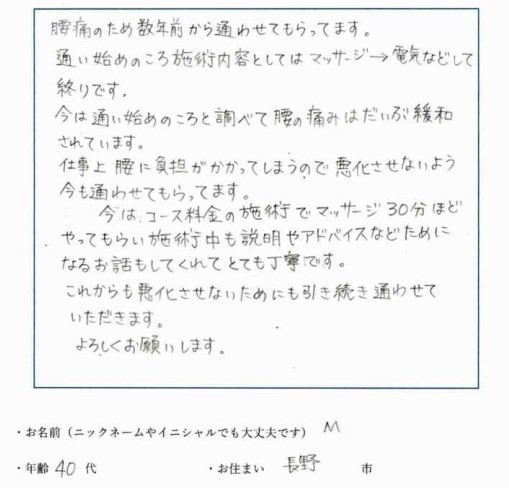 腰痛のため数年前から通わせてもらってます。
通い始めのころ施術内容としてはマッサージ→電気などして
終りです。
今は通い始めのころと調べて腰の痛みはだいぶ緩和
されています。
仕事上腰に負担がかかってしまうので悪化させないよう
今も通わせてもらってます。
今は、コース料金の施術でマッサージ30分ほど
やってもらい施術中も説明やアドバイスなどために
なるお話もしてくれてとても丁寧です。
これからも悪化させないためにも引き続き通わせて
いただきます。
よろしくお願いします。
・お名前（ニックネームやイニシャルでも大丈夫です） M
・年齢 40 代 ・お住まい 長野 市